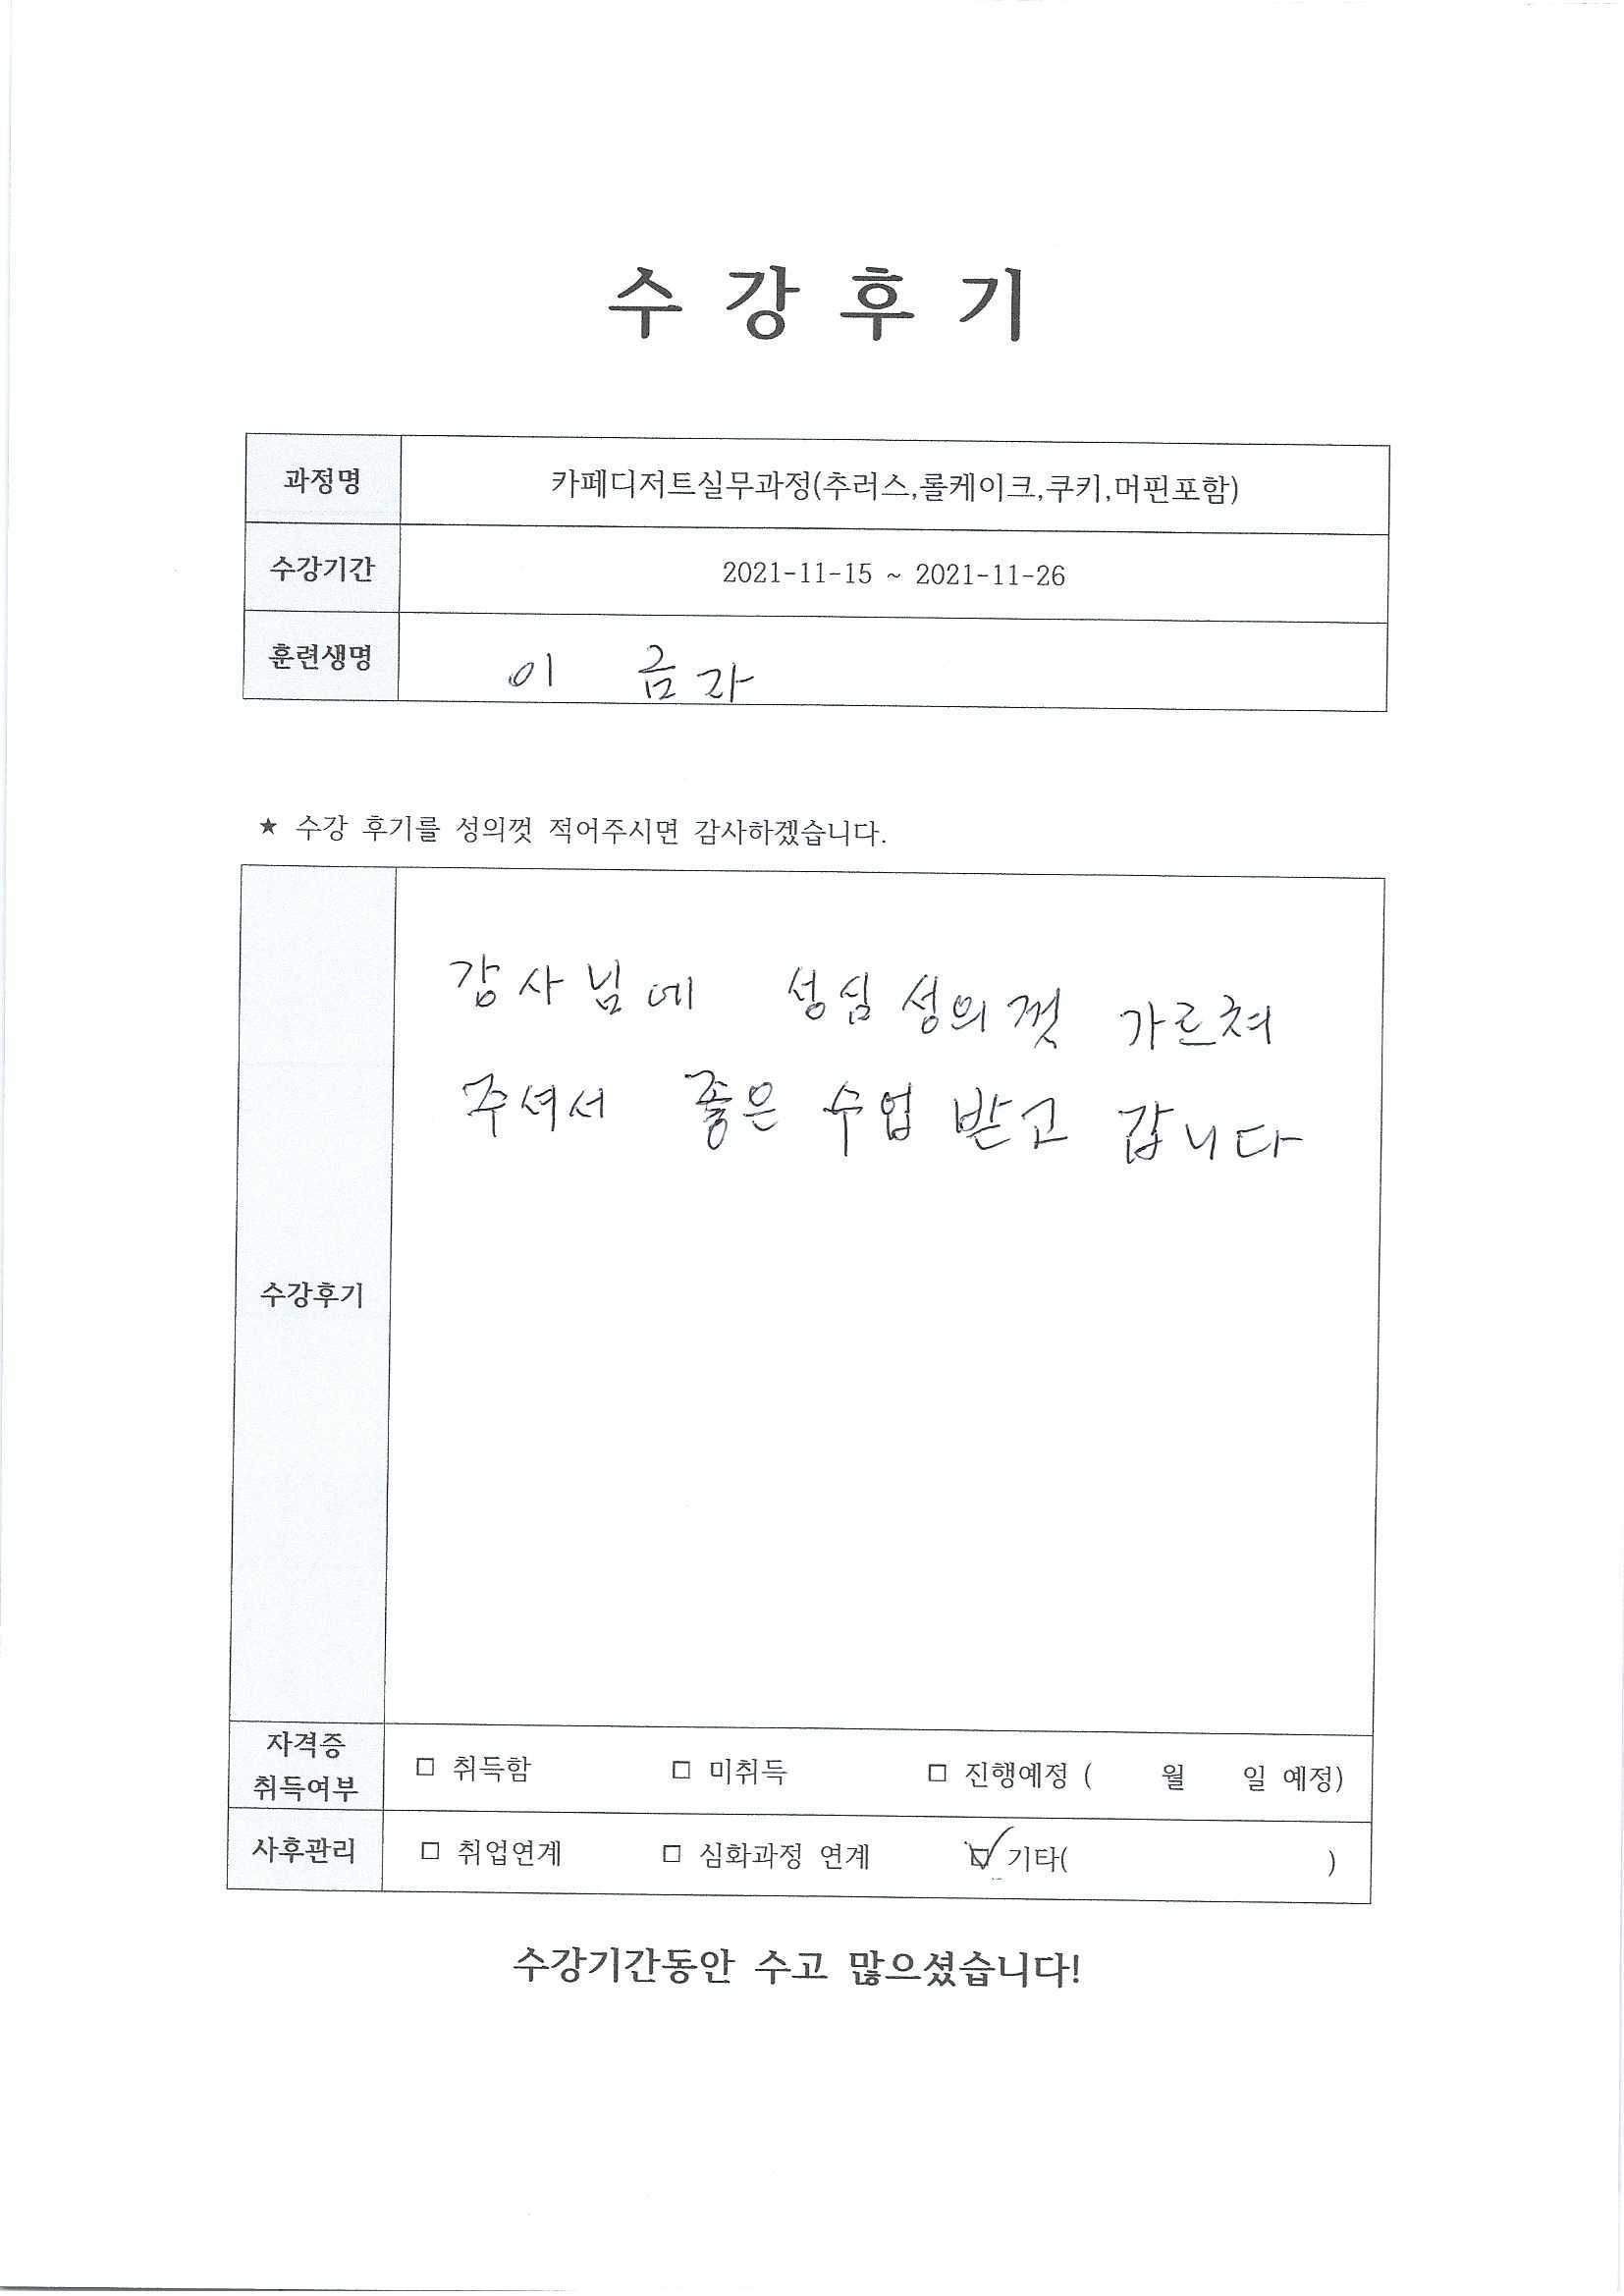 수 강 후 기
과정명 카페디저트실무과정(추러스,롤케이크,쿠키,머핀포함)
수강기간 2021-11-15 ~ 2021-11-26
훈련생명 이 금자
★ 수강 후기를 성의껏 적어주시면 감사하겠습니다.
강사님에 성심 성의껏 가르쳐
주셔서 좋은 수업 받고 갑니다
수강후기
자격증
취득여부 □ 취득함 □ 미취득 □ 진행예정 ( 월 일 예정)
사후관리 □ 취업연계 □ 심화과정 연계 ☑ 기타( )
수강기간동안 수고 많으셨습니다!